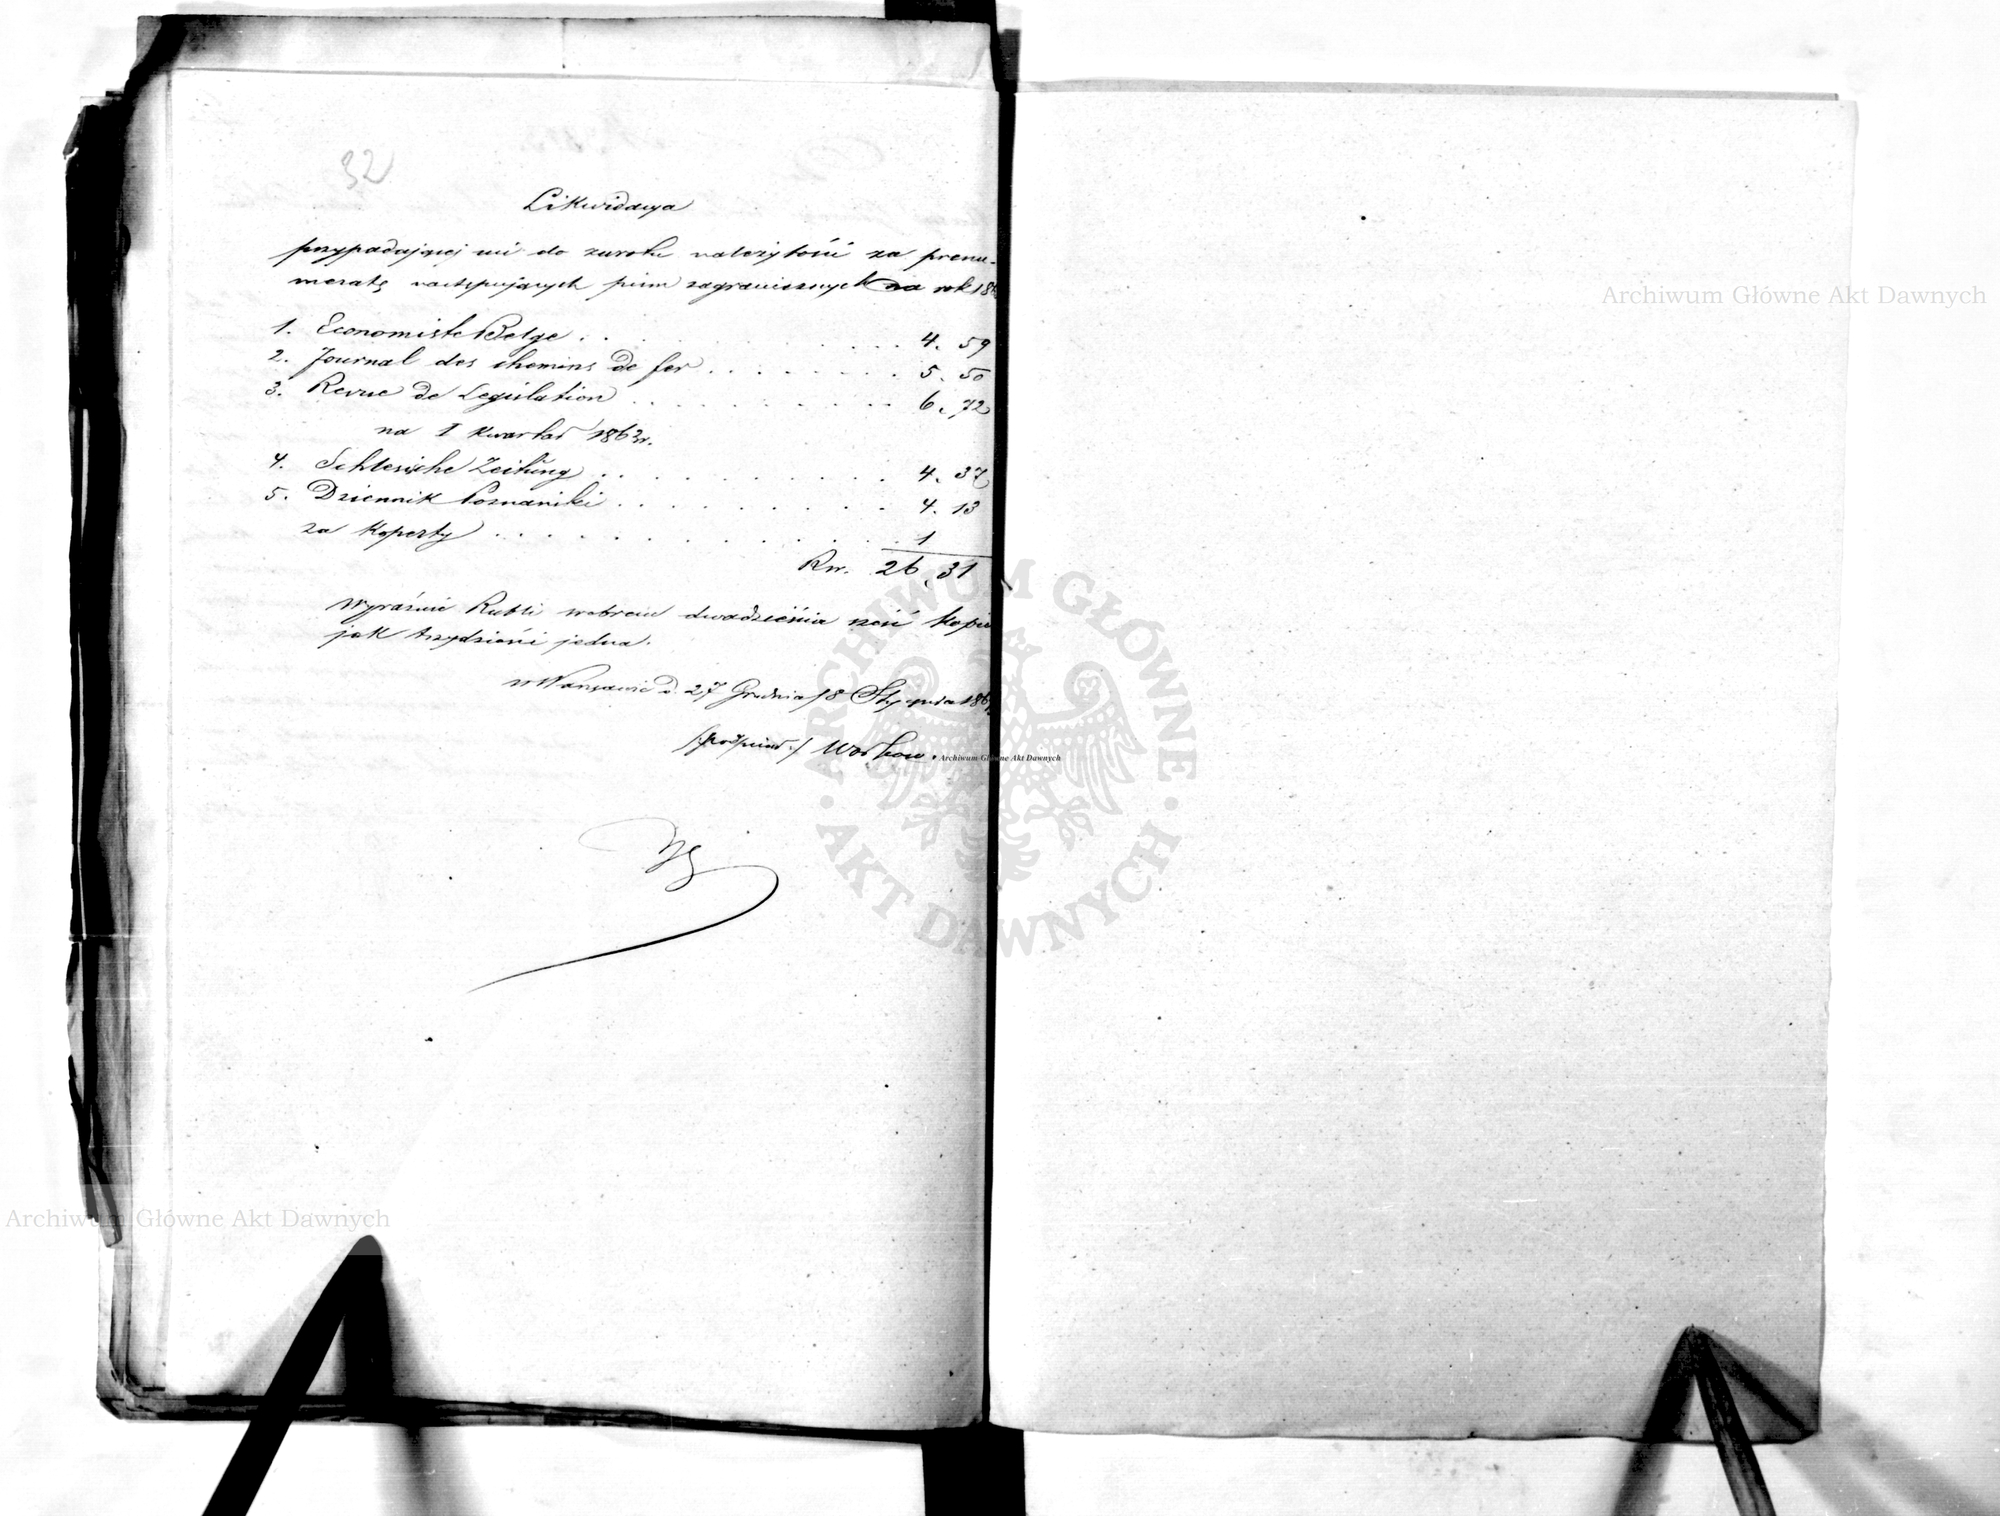 32
Likwidacya
przypadającej mi do zwrotu należytości za prenu-
meratę następujących pism zagranicznych na rok 18
1. Economiste Belge . . . . . . . . . 4. 59
2. Journal des chemins de fer . . . . . . . 5. 50
3. Revue de Legislation . . . . . . . . . 6. 72
na I kwartał 1863 r.
4. Schlesische Zeitung . . . . . . . . . 4. 37
5. Dziennik Poznański . . . . . . . . . 4. 13
za koperty . . . . . . . . . . . . 1
Rsr. 26. 31
Wyraźnie Rubli srebrem dwadzieścia sześć kopie
jek trzydzieści jedna.
w Warszawie d. 27 Grudnia / 8 Stycznia 186
/:podpisał:/
Archiwum Główne Akt Dawnych
Archiwum Główne Akt Dawnych
Archiwum Główne Akt Dawnych
ARCHIWUM GŁÓWNE
AKT DAWNYCH